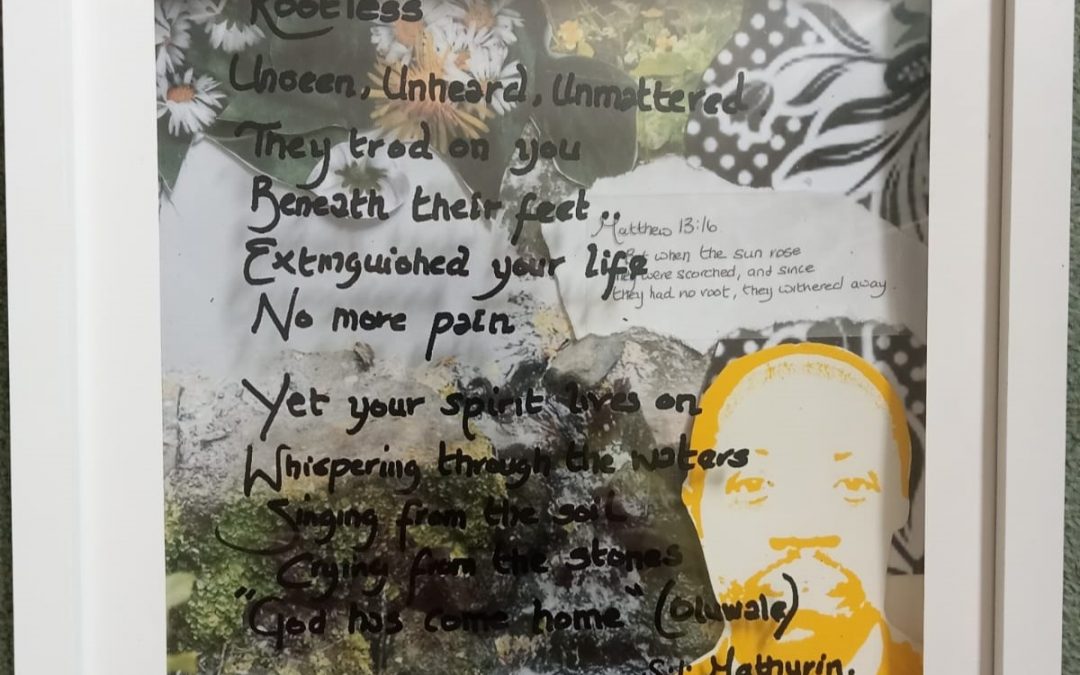 Rootless
Unseen, Unheard, Unmattered.
They trod on you
Beneath their feet..
Extinguished your life
No more pain
Matthew 13:16
But when the sun rose
they were scorched, and since
they had no root, they withered away.
Yet your spirit lives on
Whispering through the waters
Singing from the soil
Crying from the stones
"God has come home" (Oluwale)
Mathurin.